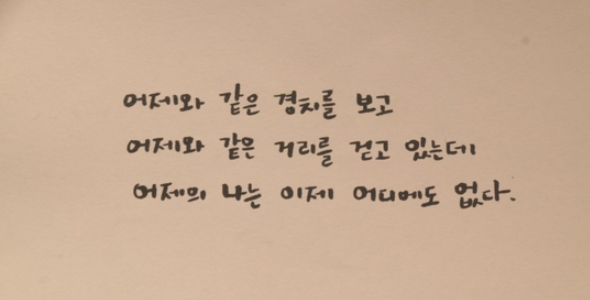 어제와 같은 경치를 보고
어제와 같은 거리를 걷고 있는데
어제의 나는 이제 어디에도 없다.